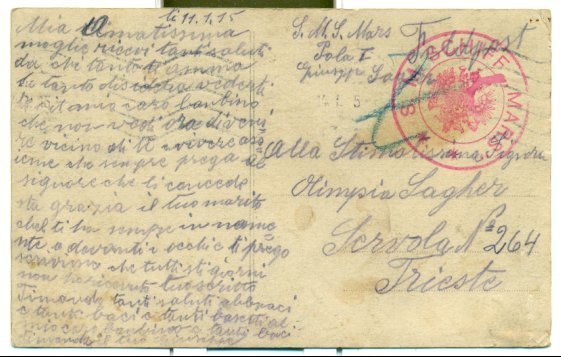 li 11.1.15
Mia amatissima
moglie ricevi tanti saluti
da chi tanto ti amma
e tanto vederti
mio caro banbino
che non vedi ora di veni
re vicino di te vivere
ieme che sempre prega el
signore che li concede
sta grazia il tuo marito
chel ti ha sempre in name
nte e davanti e ochi e ti prego
che tutti sti giorni
non tuo scritto
Timando tanti saluti abbraci
e tanti baci e tanti al
mio caro banbino e tanti baci
il tuo
S. M. S. Mars
Pola I
Feldpost
S.M. SCHIFF MARS
Alla Stimatissima Signora
Olimpia Sagher
Servola No 264
Trieste